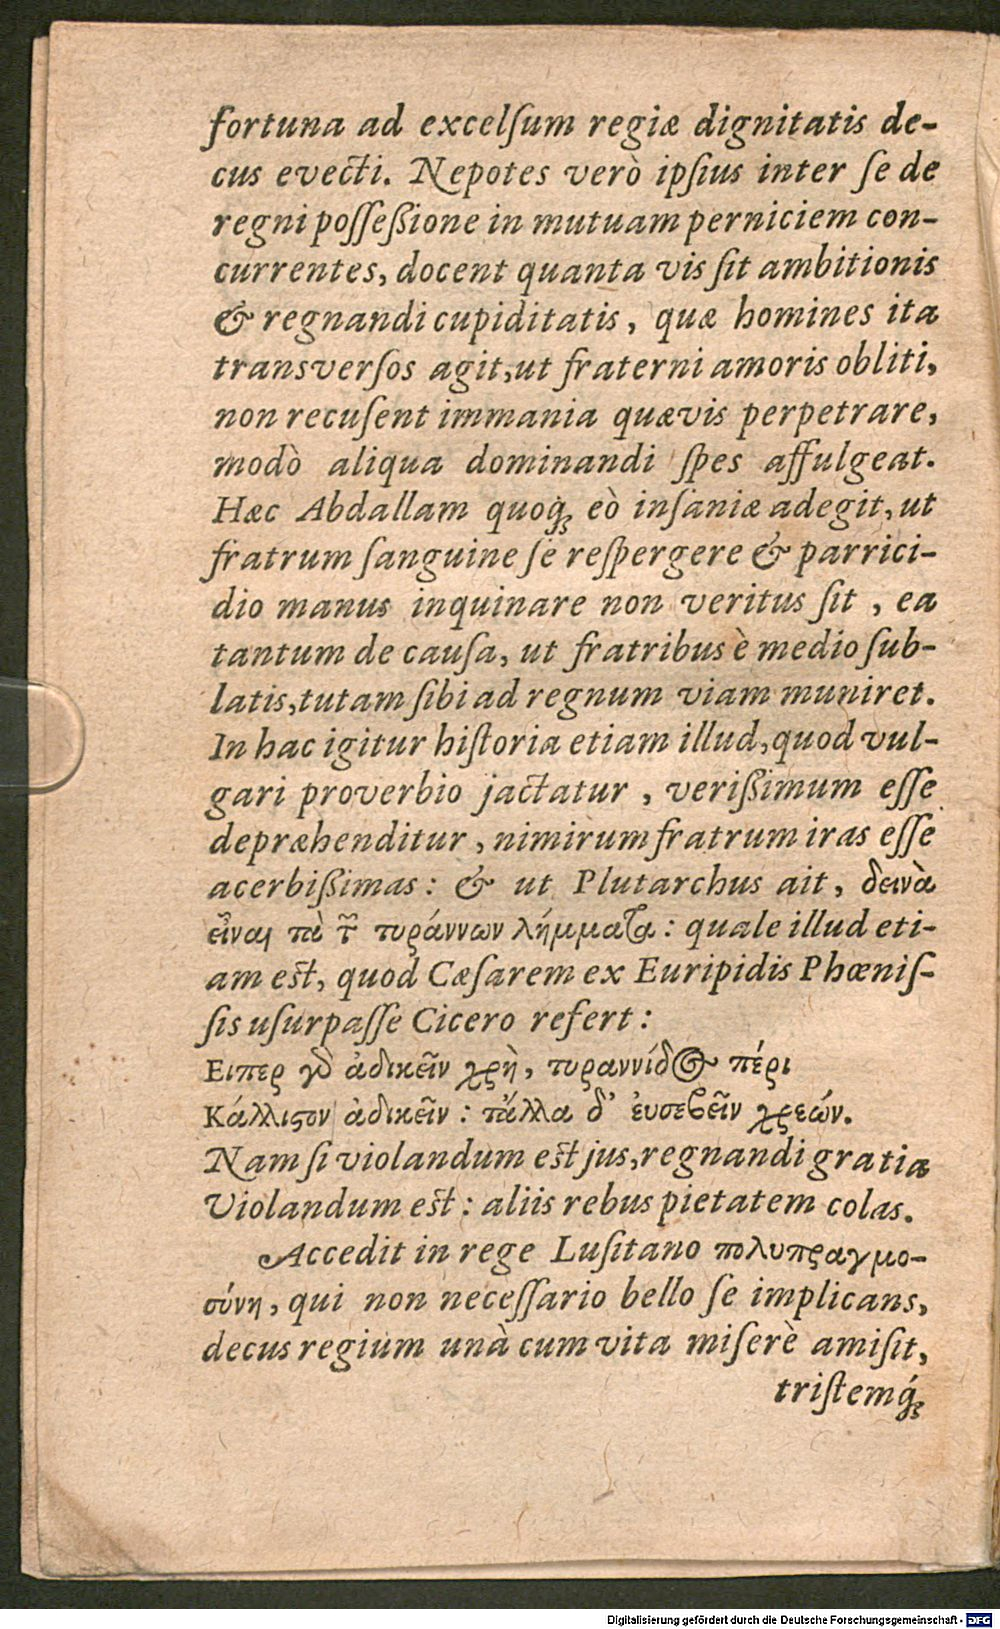 fortuna ad excelſum regiæ dignitatis de-
cus evecti. Nepotes verò ipſius inter ſe de
regni poſſeßione in mutuam perniciem con-
currentes, docent quanta vis ſit ambitionis
& regnandi cupiditatis, quæ homines ita
transverſos agit, ut fraterni amoris obliti,
non recuſent immania quævis perpetrare,
modò aliqua dominandi ſpes affulgeat.
Hæc Abdallam quoq́ꝫ eò inſaniæ adegit, ut
fratrum ſanguine ſe reſpergere & parrici-
dio manus inquinare non veritus ſit, ea
tantum de cauſa, ut fratribus è medio ſub-
latis, tutam ſibi ad regnum viam muniret.
In hac igitur hiſtoria etiam illud, quod vul-
gari proverbio jactatur, verißimum eſſe
depræhenditur, nimirum fratrum iras eſſe
acerbißimas: & ut Plutarchus ait, δεινὰ
εἶναι τὰ τῶν τυράννων λήμματα: quale illud eti-
am est, quod Cæſarem ex Euripidis Phœniſ-
ſis uſurpaſſe Cicero refert:
Ειπερ γὸ ἀδικεῖν χρὴ, τυραννίδος πέρι
Κάλλιστον ἀδικεῖν: τἄλλα δ' ἐυσεβεῖν χρεών.
Nam ſi violandum est jus, regnandi gratia
Violandum est: aliis rebus pietatem colas.
Accedit in rege Luſitano πολυπραγμο-
σύνη, qui non neceſſario bello ſe implicans,
decus regium unà cum vita miſerè amiſit,
triſtemq́ꝫ
Digitalisierung gefördert durch die Deutsche Forschungsgemeinschaft - DFG